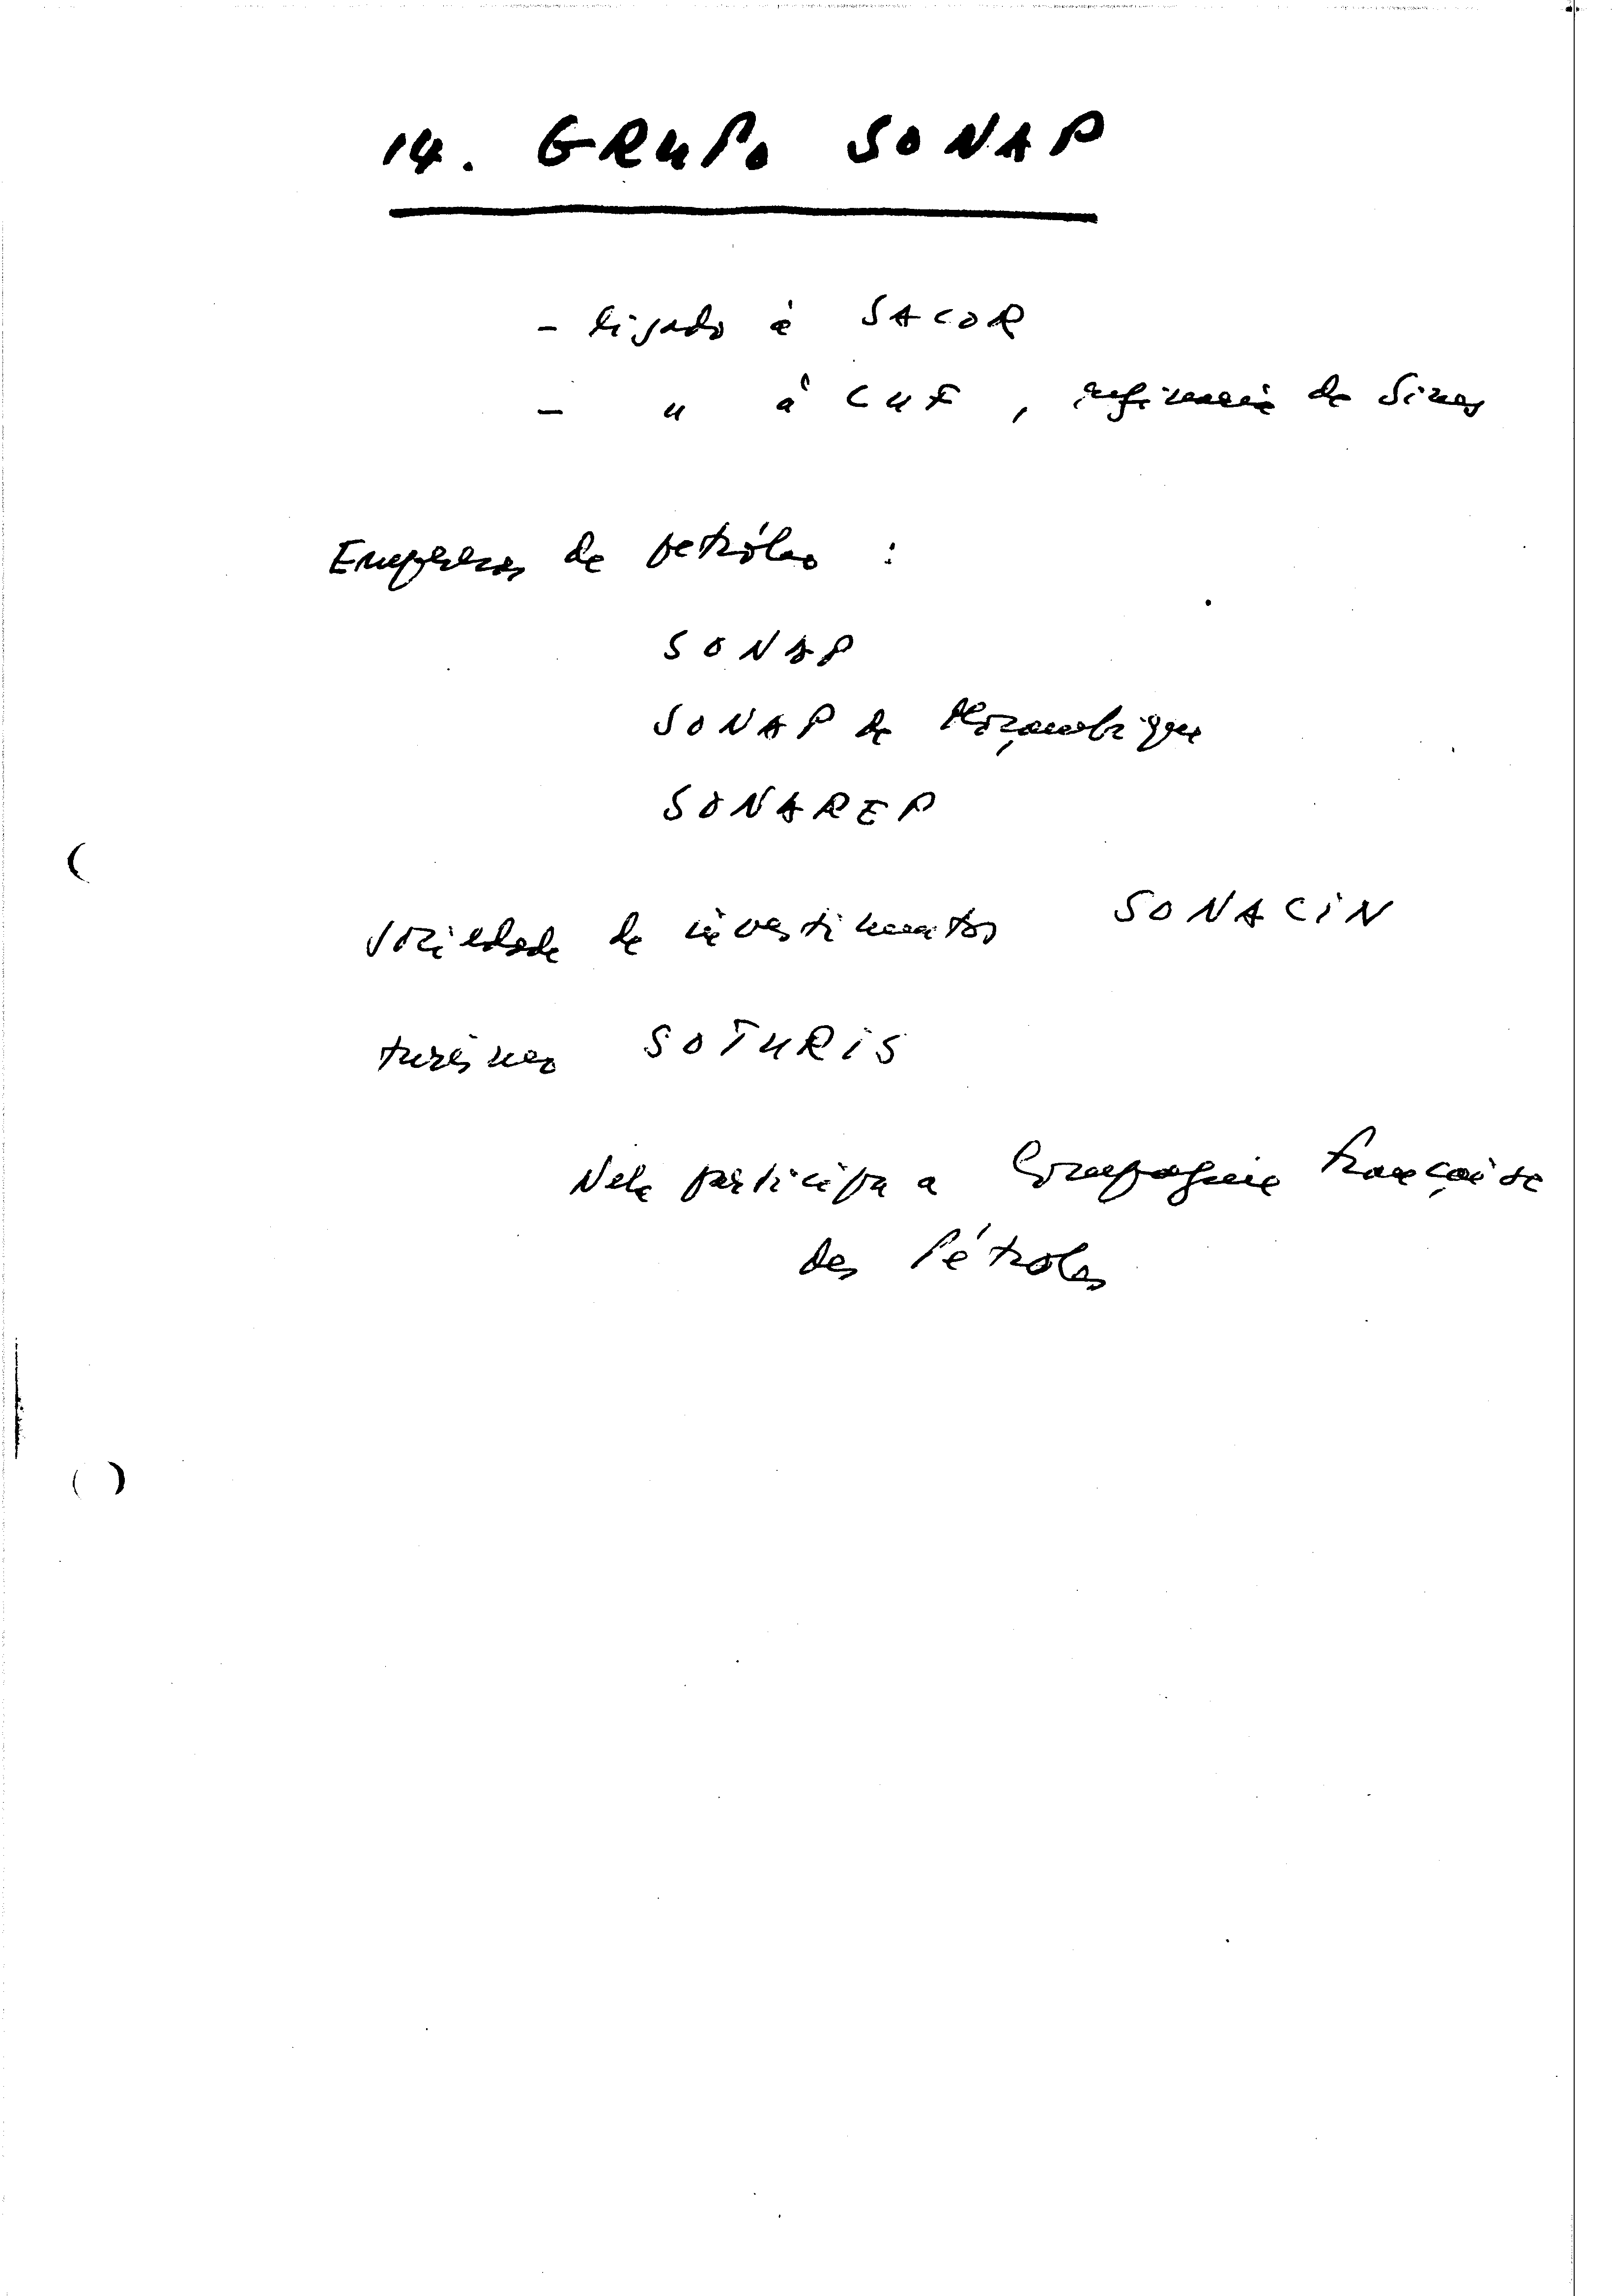 14. GRUPO SONAP
- ligado à SACOR
- " à CUF, refinaria de Sines
Empresas de petróleo :
SONAP
SONAP de Moçambique
SONAREP
Sociedade de investimentos SONACIN
turismo SOTURIS
Nela participa a Compagnie française
des Pétroles